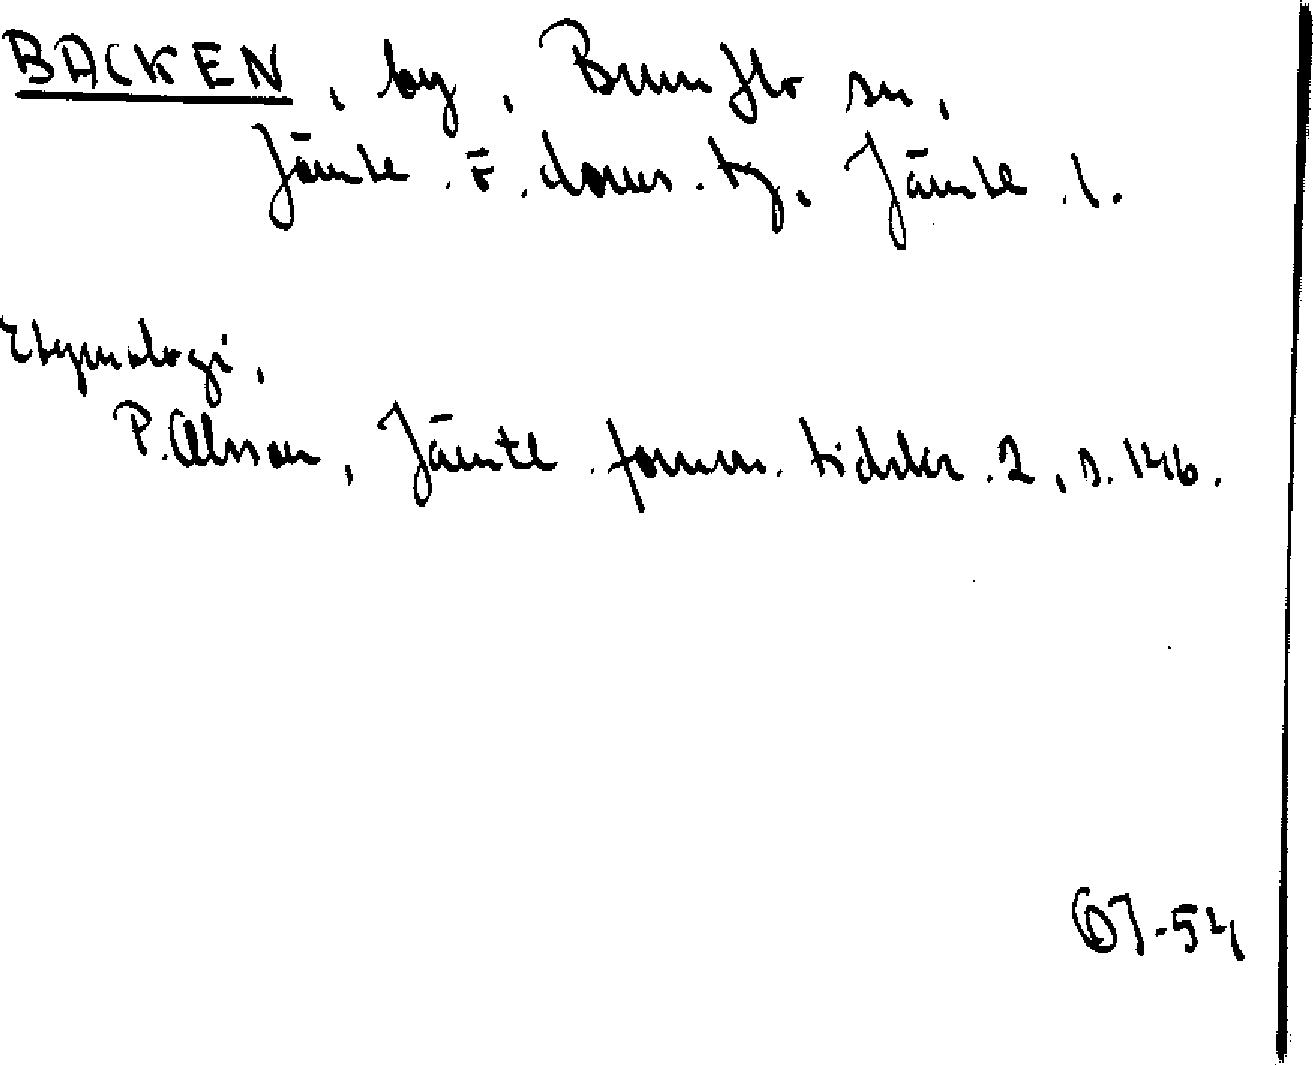 BACKEN, by, Brunflo sn,
Jämtl. ö. doms. tg, Jämtl. l.
Etymologi.
P. Olsson, Jämtl. fornm. tidskr. 2, s. 146.
OJ-54